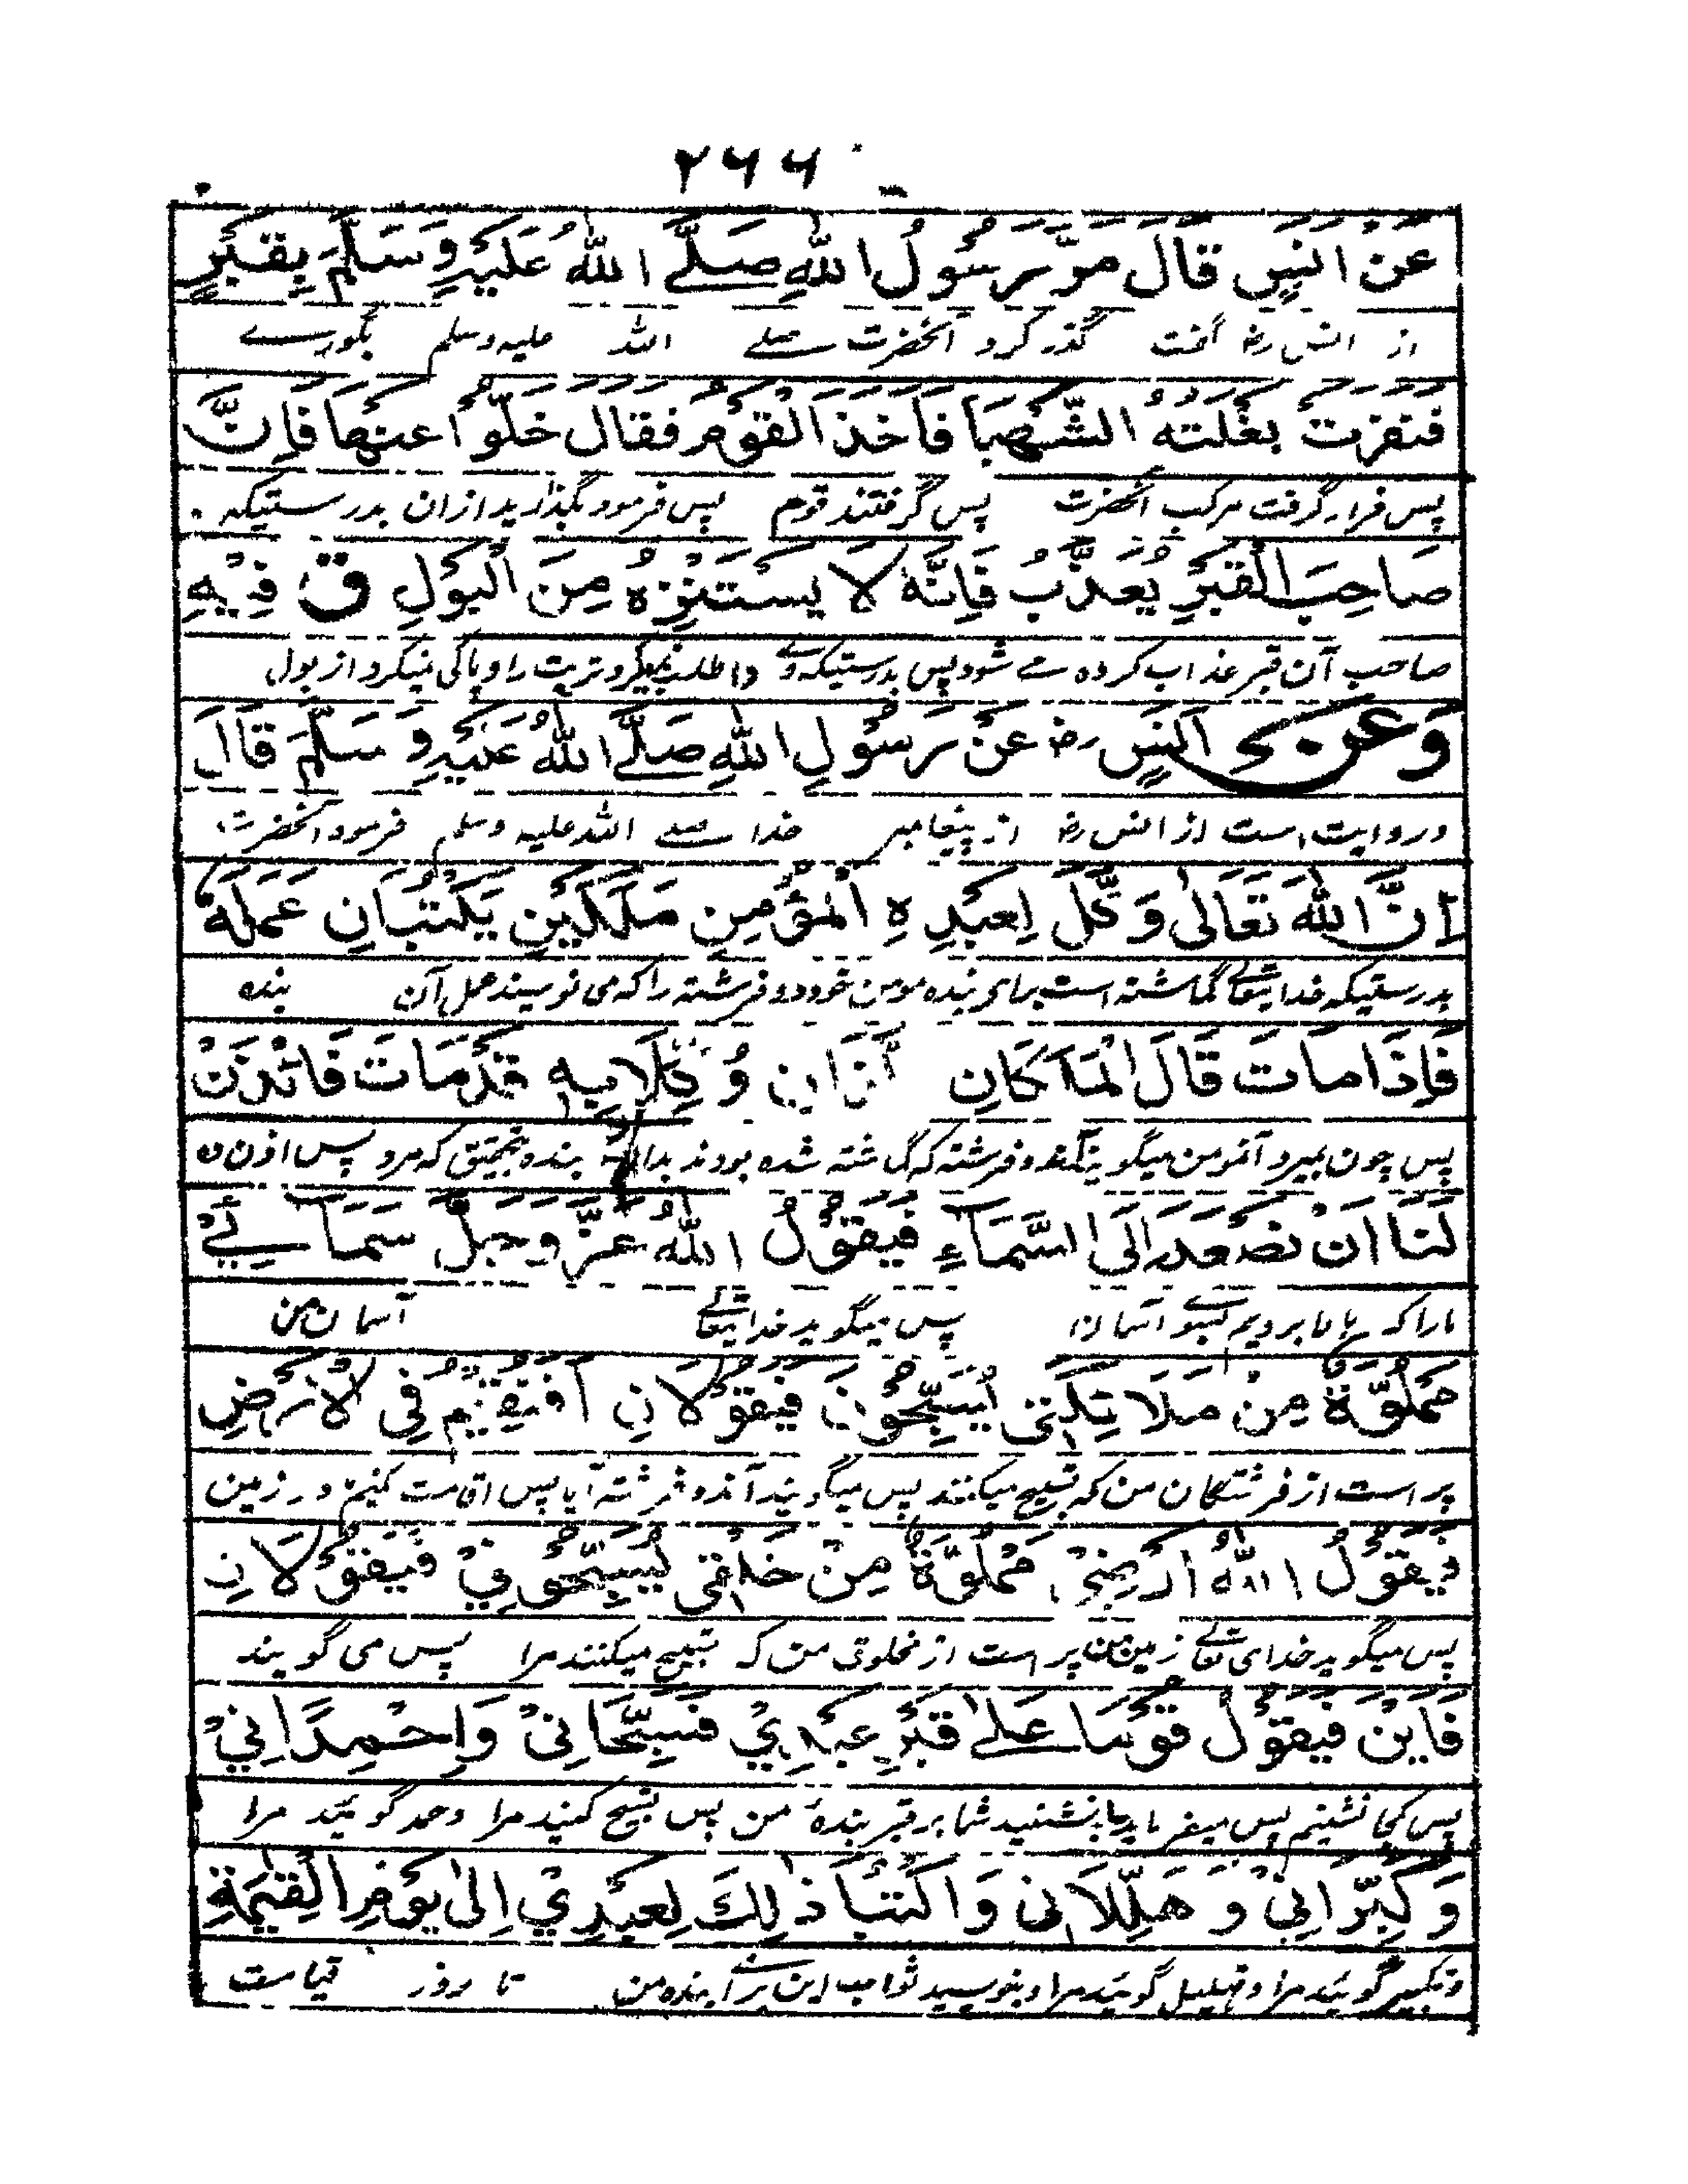 ۲۶۶
عَنْ اَنَسٍ قَالَ مَرَّ رَسُوْلُ اللّٰهِ صَلَّے اللّٰهُ عَلَيْهِ وَسَلَّمَ بِقَبْرٍ
از انس رضہ گفت گذر کرد آنحضرت صلے اللہ علیہ وسلم بگورے
فَنَفَرَتْ بَغْلَتُهُ الشَّهْبَا فَاَخَذَ الْقَوْمُ فَقَالَ خَلُّوْا عَنْهَا فَاِنَّ
پس فرار گرفت مرکب آنحضرت پس گرفتند قوم پس فرمود بگذارید ازان بدرستیکہ
صَاحِبَ الْقَبْرِ يُعَذَّبُ فَاِنَّهٗ لَا يَسْتَنْزِهُ مِنَ الْبَوْلِ ق فِيْهِ
صاحب آن قبر عذاب کردہ مے شود پس بدرستیکہ وے پاکی نمیکرد از بول
وَعَنْ اَنَسٍ رضہ عَنْ رَسُوْلِ اللّٰهِ صَلَّے اللّٰهُ عَلَيْهِ وَسَلَّمَ قَالَ
و روایت است از انس رضہ از پیغامبر خدا صلے اللہ علیہ وسلم فرمود آنحضرت
اِنَّ اللّٰهَ تَعَالٰى وَكَّلَ لِعَبْدِهِ الْمُؤْمِنِ مَلَكَيْنِ يَكْتُبَانِ عَمَلَهٗ
بدرستیکہ خدایتعالے گماشتہ است برای بندہ مومن خود دو فرشتہ را کہ می نویسند عمل آن بندہ
فَاِذَا مَاتَ قَالَ الْمَلَكَانِ الَّذَانِ وُكِّلَا بِهٖ قَدْمَاتَ فَائْذَنْ
پس چون بمیرد آنمومن میگویند آندو فرشتہ کہ گماشتہ شدہ بودند بدان بندہ بتحقیق کہ مرد پس اذن دہ
لَنَا اَنْ نَصْعَدَ اِلَى السَّمَاءِ فَيَقُوْلُ اللّٰهُ عَزَّ وَجَلَّ سَمَائِيْ
مارا کہ بالا برویم بسوے آسمان پس میگوید خدایتعالے آسمان من
مَمْلُوَّةٌ مِنْ مَلَائِكَتِيْ يُسَبِّحُوْنَ فَيَقُوْلَانِ اَفَنُقِيْمُ فِي الْاَرْضِ
پر است از فرشتگان من کہ تسبیح میکنند پس میگویند آندو فرشتہ آیا پس اقامت کنیم در زمین
فَيَقُوْلُ اللّٰهُ اَرْضِيْ مَمْلُوَّةٌ مِنْ خَلْقِيْ يُسَبِّحُوْنِيْ فَيَقُوْلَانِ
پس میگوید خدای تعالے زمین من پر است از مخلوق من کہ تسبیح میکنند مرا پس می گویند
فَاَيْنَ فَيَقُوْلُ قُوْمَا عَلٰى قَبْرِ عَبْدِيْ فَسَبِّحَانِيْ وَاحْمِدَانِيْ
پس کجا نشینیم پس میفرماید بنشینید شما بر قبر بندۂ من پس تسبیح کنید مرا وحمد گوئید مرا
وَكَبِّرَانِيْ وَهَلِّلَانِيْ وَاكْتُبَا ذٰلِكَ لِعَبْدِيْ اِلٰى يَوْمِ الْقِيٰمَةِ
و تکبیر گوئید مرا و تہلیل گوئید مرا و بنویسید ثواب این براے بندہ من تا روز قیامت